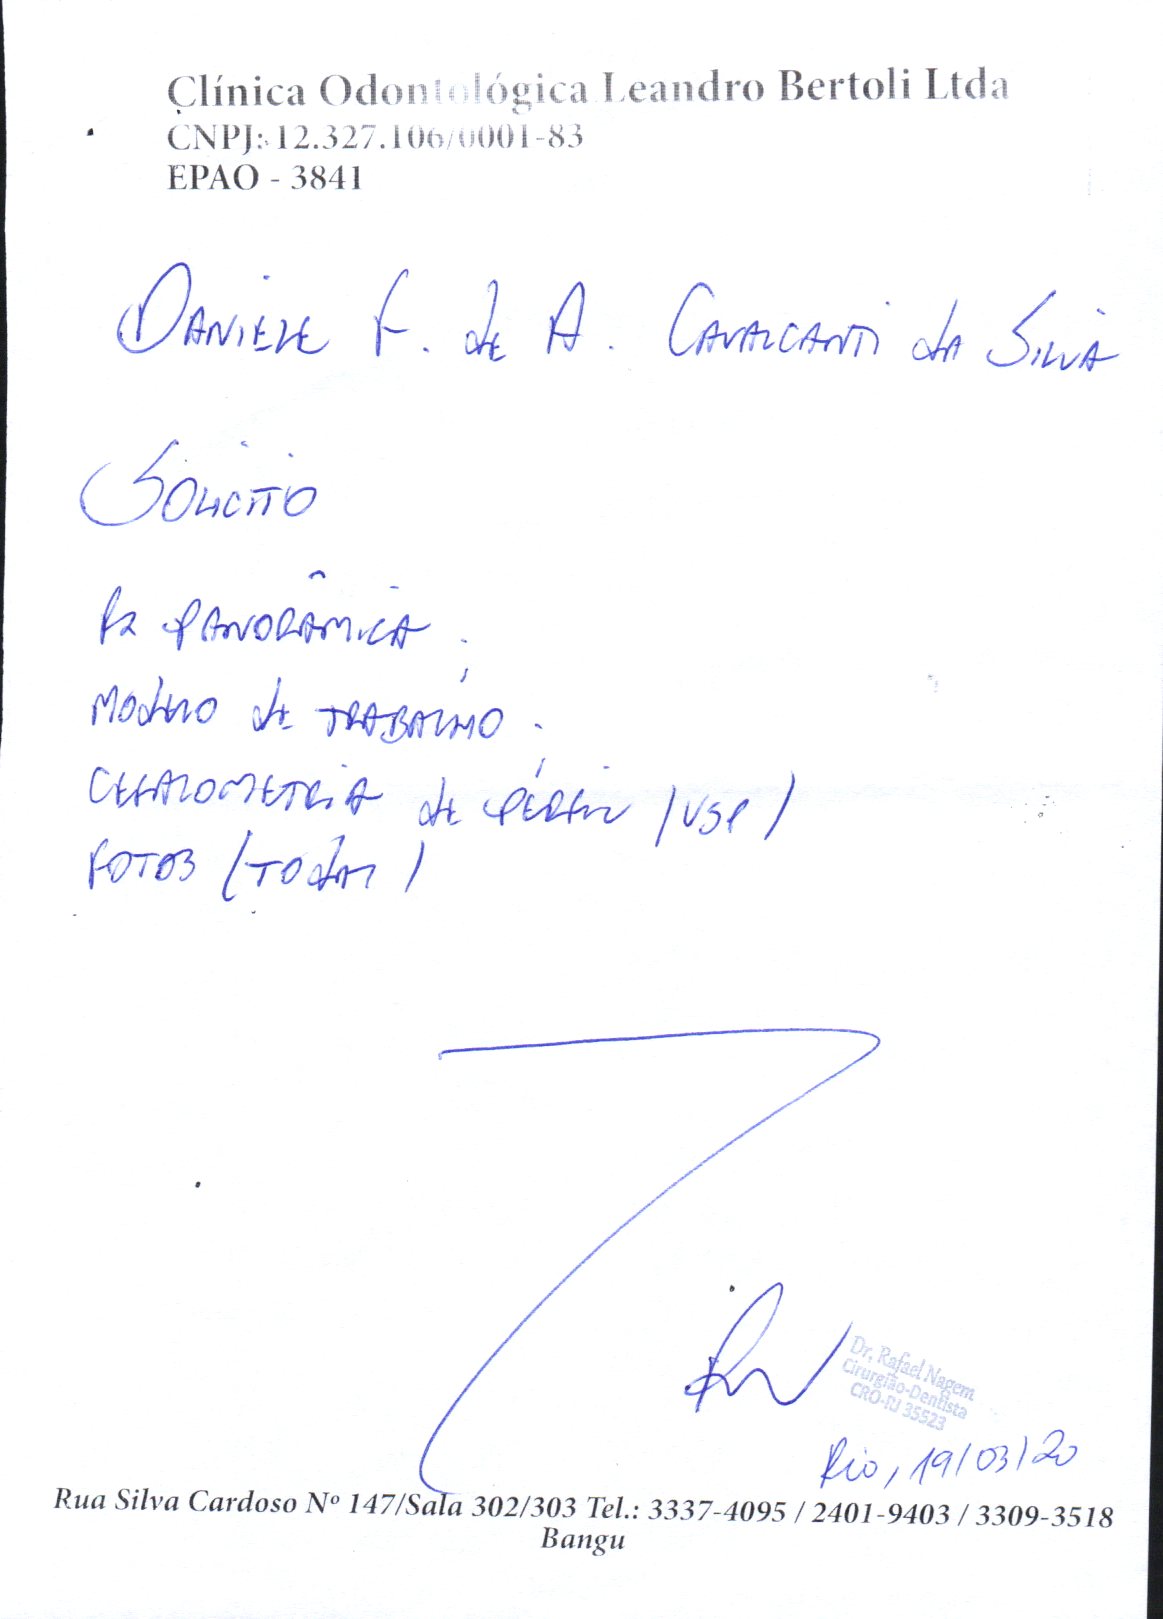 Clínica Odontológica Leandro Bertoli Ltda
CNPJ: 12.327.106/0001-83
EPAO - 3841
DANIELE F. de A. CAVALCANTI da SILVA
SOLICITO
RX PANORÂMICA;
MODELO de TRABALHO;
CEFALOMETRIA de PERFIL (USP)
FOTOS (TODAS)
Dr. Rafael Nagem
Cirurgião-Dentista
CRO-RJ 35523
Rio, 19/03/20
Rua Silva Cardoso Nº 147/Sala 302/303 Tel.: 3337-4095 / 2401-9403 / 3309-3518
Bangu